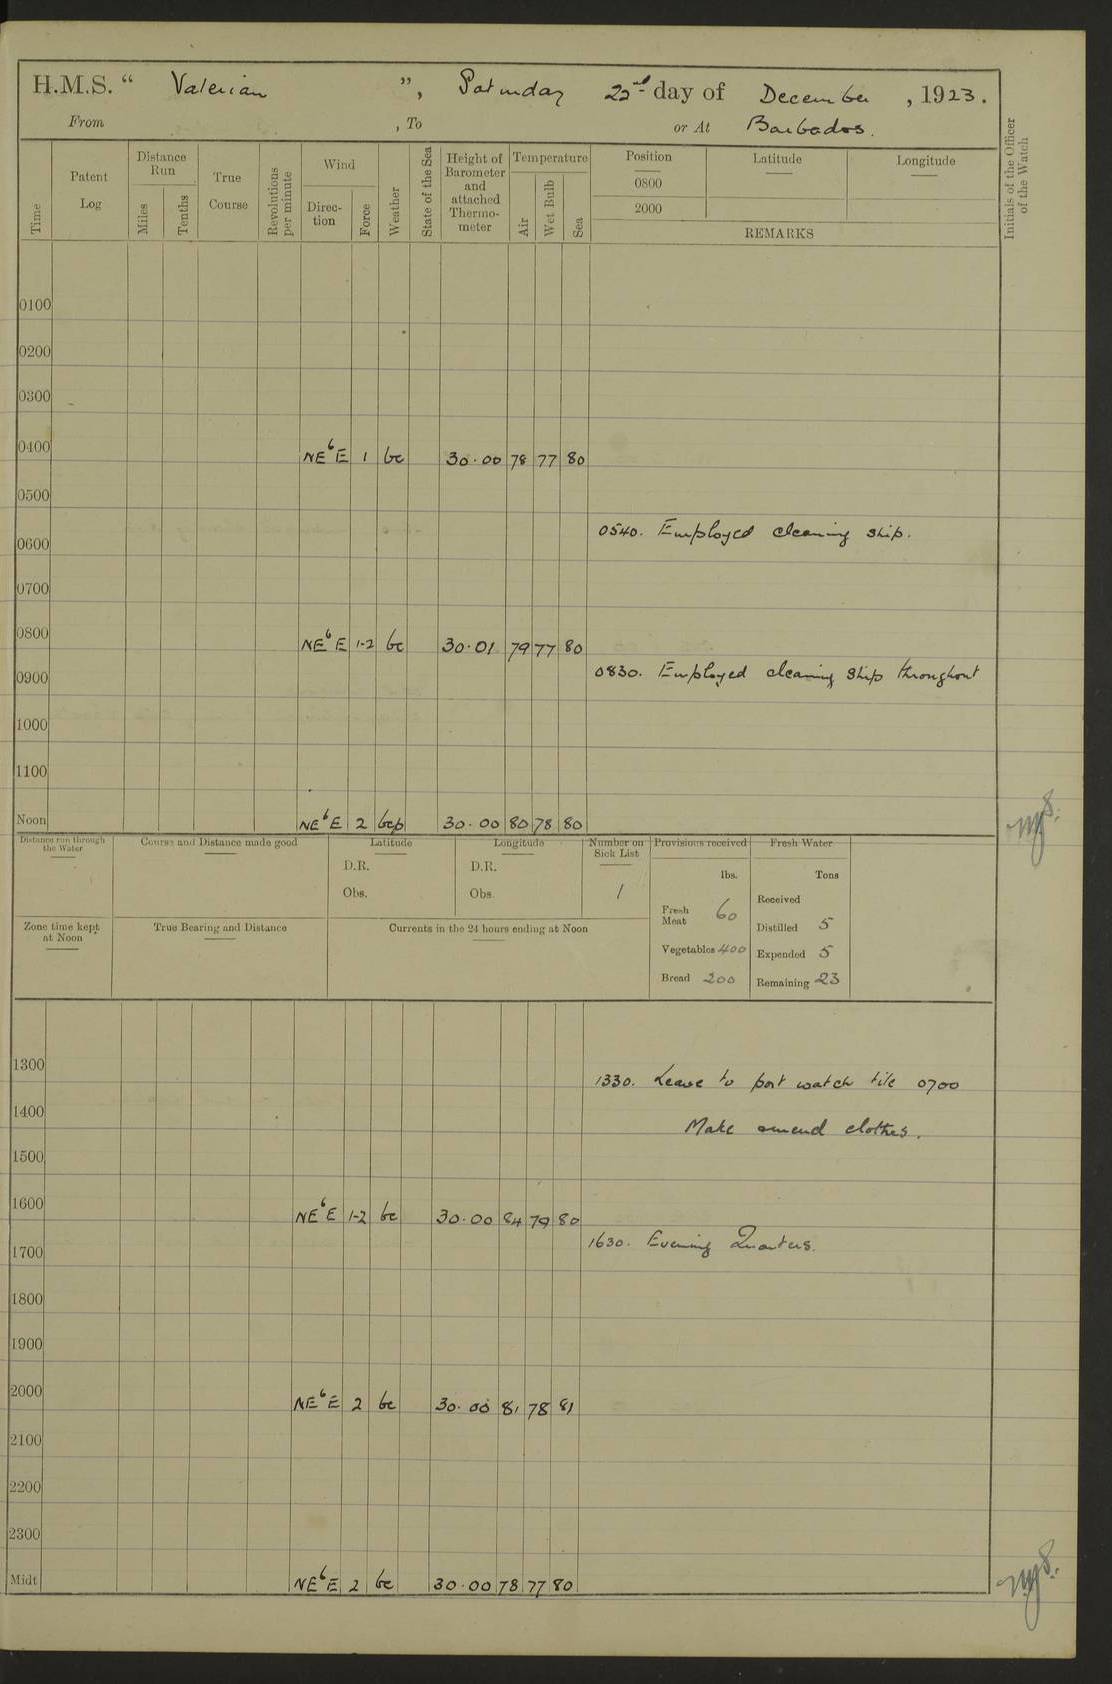 H.M.S. “ Valerian ”, Saturday 22nd day of December , 1923.
From , To or At Barbados.
Time
Patent Log
Distance Run
Miles
Tenths
True Course
Revolutions per minute
Wind
Direc-tion
Force
Weather
State of the Sea
Height of Barometer and attached Thermo-meter
Temperature
Air
Wet Bulb
Sea
Position
0800
2000
Latitude
Longitude
REMARKS
Initials of the Officer of the Watch
0100
0200
0300
0400 NEbE 1 bc 30.00 78 77 80
0500
0540. Employed cleaning ship.
0600
0700
0800 NEbE 1-2 bc 30.01 79 77 80
0830. Employed cleaning ship throughout
0900
1000
1100
Noon NEbE 2 bcp 30.00 80 78 80
Distance run through the Water
Course and Distance made good
Latitude
D.R.
Obs.
Longitude
D.R.
Obs.
Number on Sick List
1
Provisions received
lbs.
Fresh Meat 60
Vegetables 400
Bread 200
Fresh Water
Tons
Received
Distilled 5
Expended 5
Remaining 23
Zone time kept at Noon
True Bearing and Distance
Currents in the 24 hours ending at Noon
1300
1330. Leave to port watch till 0700
1400
Make & mend clothes.
1500
1600 NEbE 1-2 bc 30.00 84 79 80
1630. Evening Quarters.
1700
1800
1900
2000 NEbE 2 bc 30.00 81 78 81
2100
2200
2300
Midt NEbE 2 bc 30.00 78 77 80